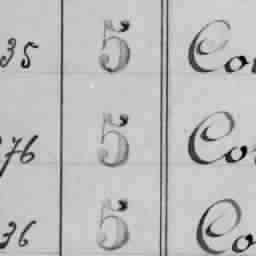 35 5 Co
76 5 Co
36 5 Co